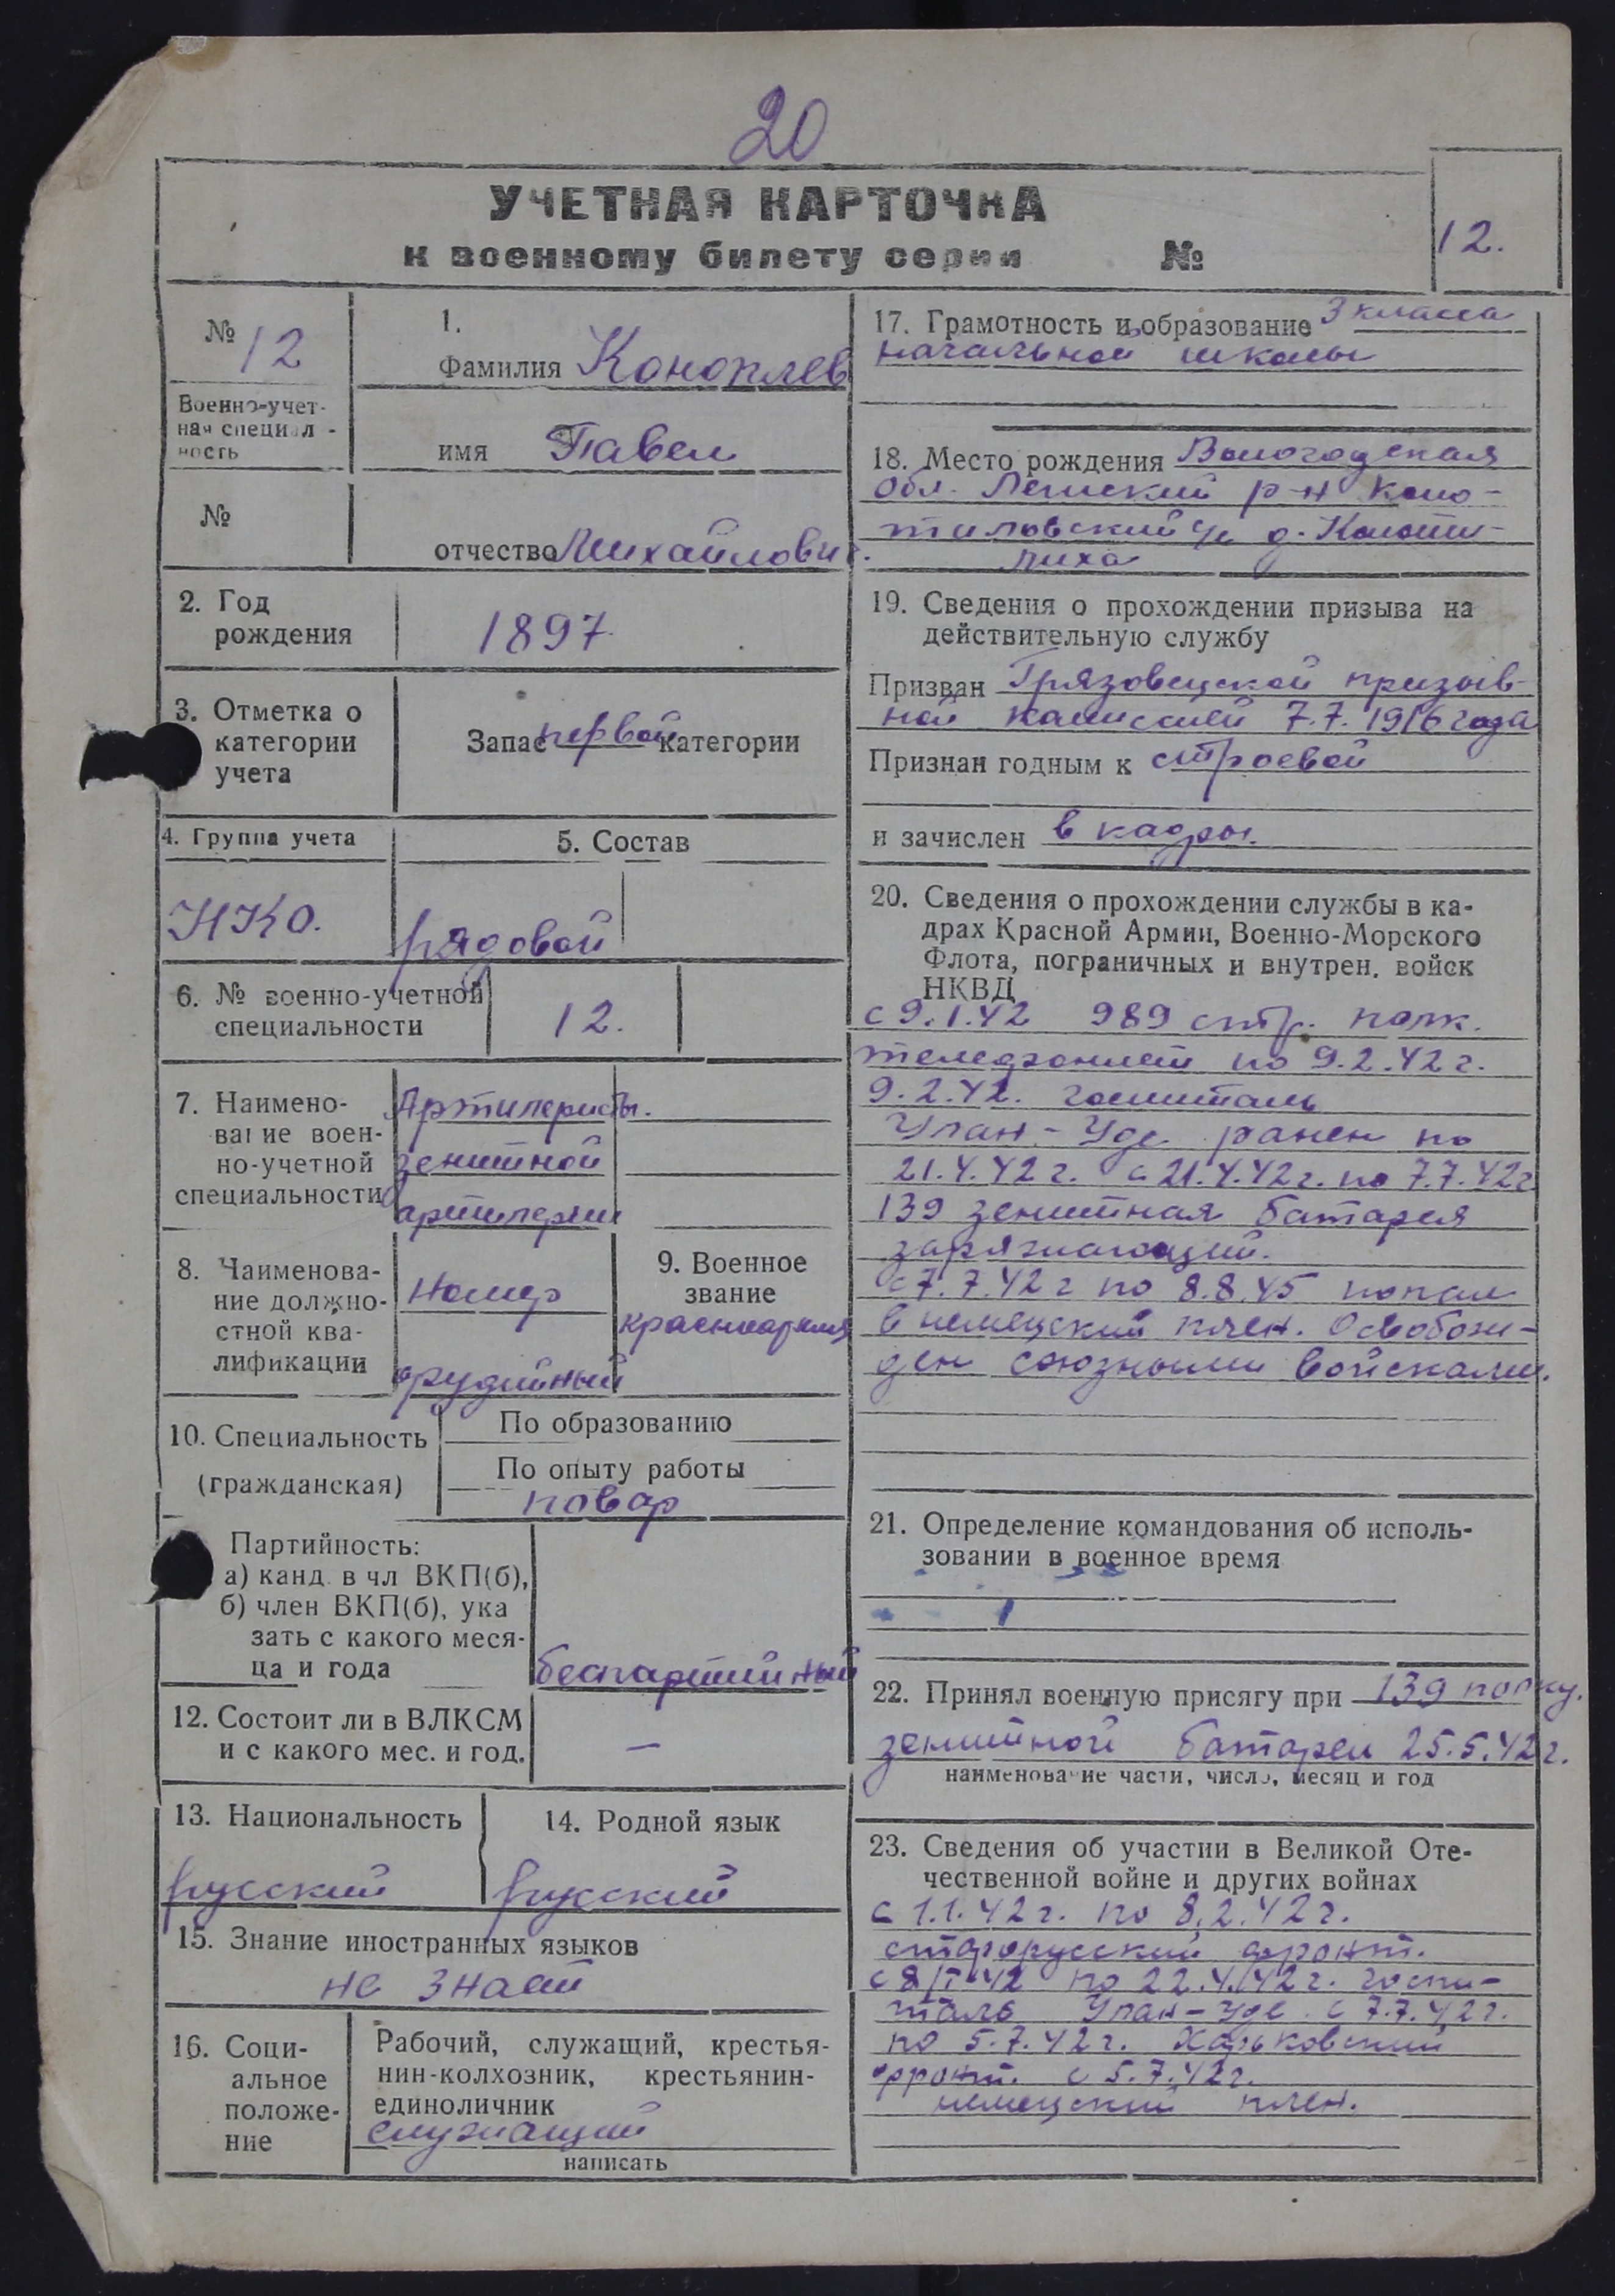 20
УЧЕТНАЯ КАРТОЧКА
к военному билету серии №
12.
№ 12
Военно-учет-
ная специал-
ность
№
1.
Фамилия Коноплев
имя Павел
отчество Михайлович.
2. Год
рождения
1897
3. Отметка о
категории
учета
Запас первой категории
4. Группа учета
НКО.
5. Состав
рядовой
6. № военно-учетной
специальности
12.
7. Наимено-
вание воен-
но-учетной
специальности
Артилеристы.
зенитной
артилерии
8. Наименова-
ние должно-
стной ква-
лификации
номер
орудийный
9. Военное
звание
красноармя
10. Специальность
(гражданская)
По образованию
По опыту работы
повар
Партийность:
а) канд. в чл ВКП(б),
б) член ВКП(б), ука
зать с какого меся-
ца и года
беспартийный
12. Состоит ли в ВЛКСМ
и с какого мес. и год.
—
13. Национальность
русский
14. Родной язык
русский
15. Знание иностранных языков
не знает
16. Соци-
альное
положе-
ние
Рабочий, служащий, крестья-
нин-колхозник, крестьянин-
единоличник
служащий
написать
17. Грамотность и образование 3 класса
начальной школы
18. Место рождения Вологодская
обл. Лежский р-н
д.
19. Сведения о прохождении призыва на
действительную службу
Призван Грязовецкой призыв-
ной комиссией 7.7.1916 года
Признан годным к строевой
и зачислен в кадры.
20. Сведения о прохождении службы в ка-
драх Красной Армии, Военно-Морского
Флота, пограничных и внутрен. войск
НКВД
с 9.1.42 989 стр. полк.
телефонист по 9.2.42 г.
9.2.42. госпиталь
Улан-Уде ранен по
21.4.42 г. с 21.4.42 г. по 7.7.42 г
139 зенитная батарея
заряжающий.
с 7.7.42 г по 8.8.45 попал
в немецкий плен. Освобож-
ден союзными войсками.
21. Определение командования об исполь-
зовании в военное время
22. Принял военную присягу при 139 полку.
зенитной батареи 25.5.42 г.
наименование части, число, месяц и год
23. Сведения об участии в Великой Оте-
чественной войне и других войнах
с 1.1.42 г. по 8.2.42 г.
старорусский фронт.
42 по 22.4.42 г. госпи-
таль Улан-Уде с 7.7.42 г.
по 5.7.42 г. Харьковский
фронт. с 5.7.42 г.
немецкий плен.